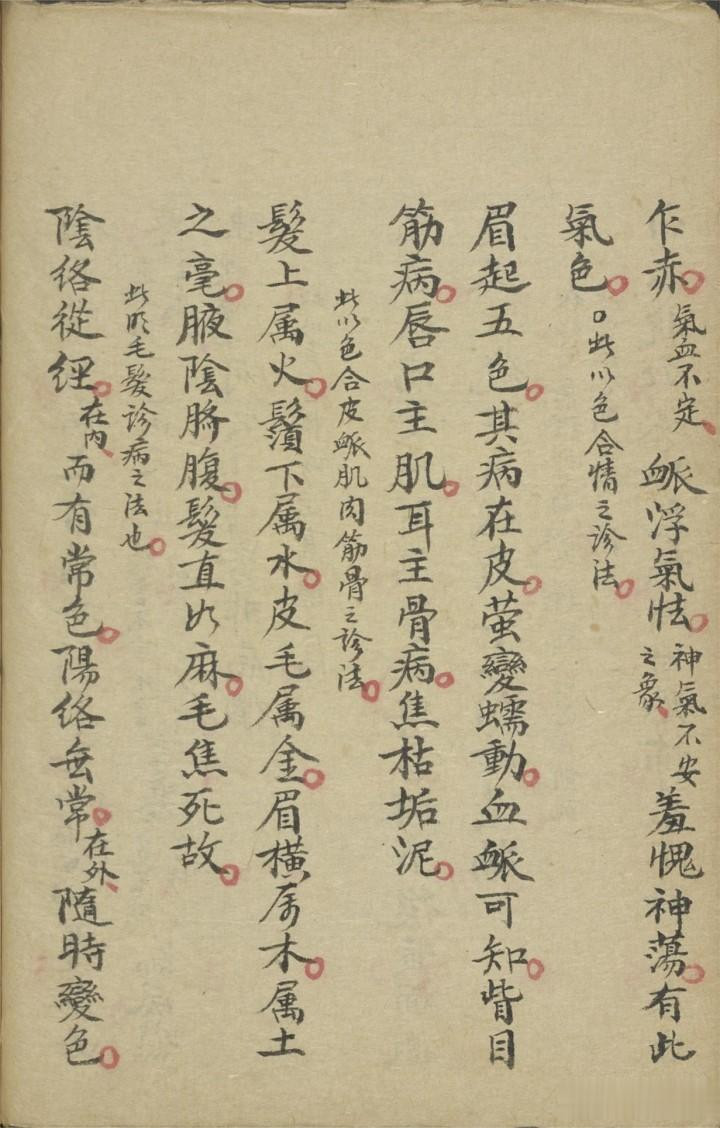 乍赤。氣血不定、䘑浮氣怯。神氣不安之象、羞愧神蕩。有此
氣色。○此以色合情之診法。
眉起五色。其病在皮。萤變蠕動。血䘑可知。眥目
筋病。唇口主肌。耳主骨病。焦枯垢泥。
此以色合皮䘑肌肉筋骨之診法。
髮上属火。鬚下属水。皮毛属金。眉橫属木。属土
之毫。腋陰臍腹。髮直如麻。毛焦死故。
此明毛髮診病之法也。
陰络從經。在內、而有常色。陽络無常。在外、隨時變色。